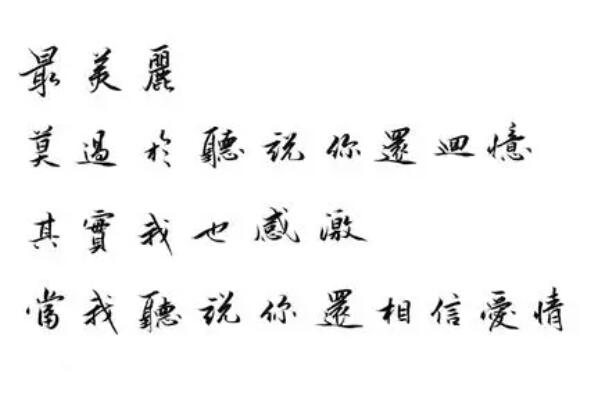 最美麗
莫過於聽說你還回憶
其實我也感激
當我聽說你還相信愛情